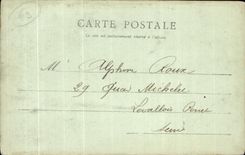 CARTE POSTALE
Ce côté est exclusivement réservé à l'adresse
M Alphonse Roux
29 Quai Michelet
Levallois Perret
Seine